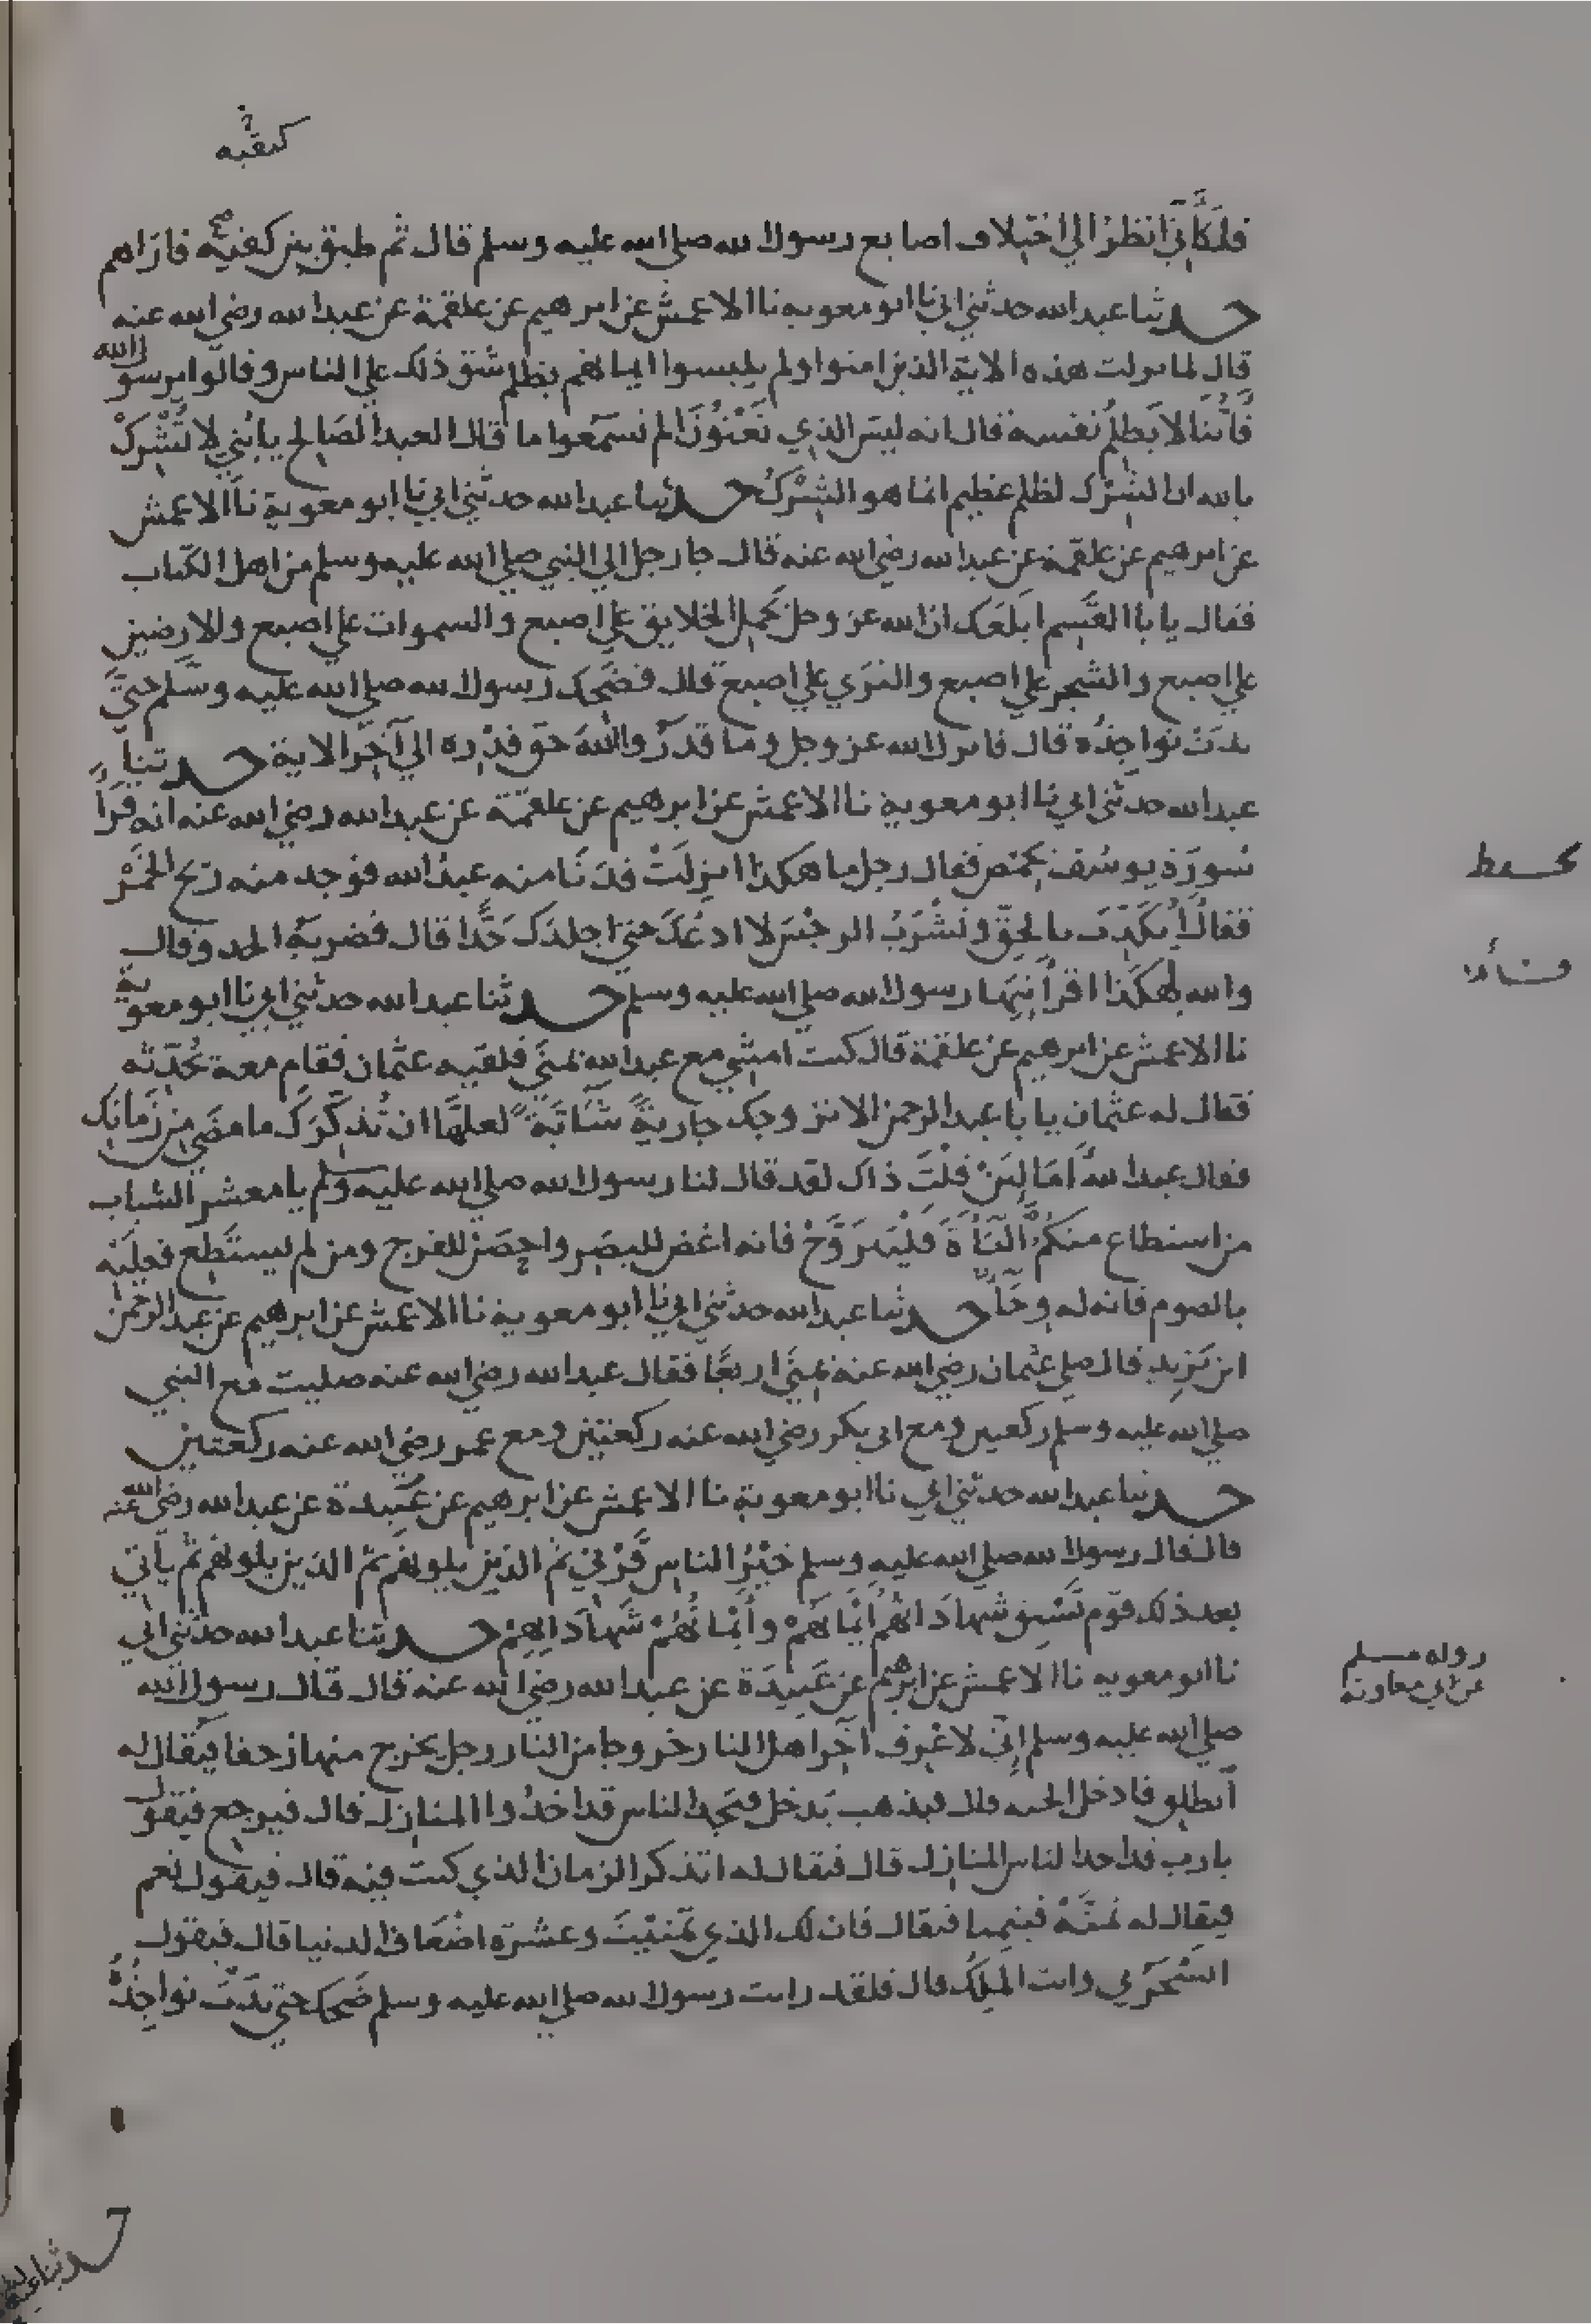 كبقيه
فلكأني انظر الي اختلاف اصابع رسول الله صلي الله عليه وسلم قال ثم طبق بين كفيه صح فاراهم
حدثنا عبد الله حدثني ابي نا ابو معوية نا الاعمش عن ابرهيم عن علقمة عن عبد الله رضي الله عنه
قال لما نزلت هذه الاية الذين امنوا ولم يلبسوا ايمانهم بظلم شق ذلك علي الناس وقالوا يرسول الله
فأينا لا يظلم نفسه قال انه ليس الذي تعنون الم تسمعوا ما قال العبد الصالح يابني لا تشرك
بالله ان الشرك لظلم عظيم انما هو الشرك حدثنا عبد الله حدثني ابي نا ابو معوية نا الاعمش
عن ابرهيم عن علقمة عن عبد الله رضي الله عنه قال جا رجل الي النبي صلي الله عليه وسلم من اهل الكتاب
فقال يا با القسم ابلغك ان الله عز وجل يحمل الخلايق علي اصبع والسموات علي اصبع والارضين
علي اصبع والشجر علي اصبع والثري علي اصبع قال فضحك رسول الله صلي الله عليه وسلم حتي
بدت نواجذه قال فانزل الله عز وجل وما قدروا الله حق قدره الي آخر الاية حدثنا
عبد الله حدثني ابي نا ابو معوية نا الاعمش عن ابرهيم عن علقمة عن عبد الله رضي الله عنه انه قرأ
سورة يوسف بحمص فقال رجل ما هكذا انزلت فدنا منه عبد الله فوجد منه ريح الخمر
فقال أتكذب بالحق وتشرب الرجس لا ادعك حتي اجلدك حدا قال فضربه الحد وقال
والله لهكذا اقرأنيها رسول الله صلي الله عليه وسلم حدثنا عبد الله حدثني ابي نا ابو معوية
نا الاعمش عن ابرهيم عن علقمة قال كنت امشي مع عبد الله بمني فلقيه عثمان فقام معه يحدثه
فقال له عثمان يا با عبد الرحمن الا نزوجك جارية شابة لعلها ان تذكرك ما مضي من زمانك
فقال عبد الله أما لئن قلت ذاك لقد قال لنا رسول الله صلي الله عليه وسلم يا معشر الشباب
من استطاع منكم الباءة فليتزوج فانه اغض للبصر واحصن للفرج ومن لم يستطع فعليه
بالصوم فانه له وجاء حدثنا عبد الله حدثني ابي نا ابو معوية نا الاعمش عن ابرهيم عن عبد الرحمن
ابن يزيد قال صلي عثمان رضي الله عنه بمني اربعا فقال عبد الله رضي الله عنه صليت مع النبي
صلي الله عليه وسلم ركعتين ومع ابي بكر رضي الله عنه ركعتين ومع عمر رضي الله عنه ركعتين
حدثنا عبد الله حدثني ابي نا ابو معوية نا الاعمش عن ابرهيم عن عبيدة عن عبد الله رضي الله عنه
قال قال رسول الله صلي الله عليه وسلم خير الناس قرني ثم الذين يلونهم ثم الذين يلونهم ثم يأتي
بعد ذلك قوم تسبق شهاداتهم أيمانهم وأيمانهم شهاداتهم حدثنا عبد الله حدثني ابي
نا ابو معويه نا الاعمش عن ابرهيم عن عبيدة عن عبد الله رضي الله عنه قال قال رسول الله
صلي الله عليه وسلم إني لاعرف آخر اهل النار خروجا من النار رجل يخرج منها زحفا فيقال له
انطلق فادخل الجنه قال فيذهب يدخل فيجد الناس قد اخذوا المنازل قال فيرجع فيقول
يا رب قد اخذ الناس المنازل قال فيقال له اتذكر الزمان الذي كنت فيه قال فيقول نعم
فيقال له تمنه فيتمنا فيقال فان لك الذي تمنيت وعشرة اضعاف الدنيا قال فيقول
اتسخر بي وانت الملك قال فلقد رايت رسول الله صلي الله عليه وسلم ضحك حتي بدت نواجذه
رواه مسلم
عن ابي معاويه
حدثنا عبد الله